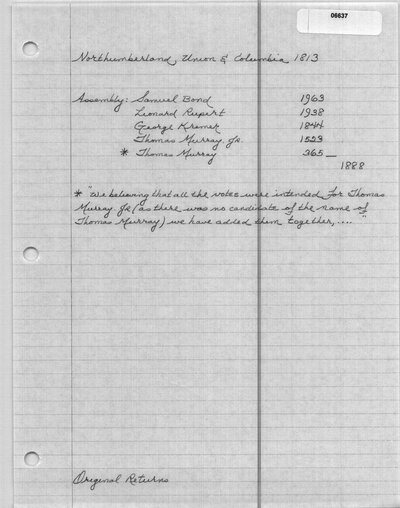 06637
Northumberland, Union & Columbia 1813
Assembly: Samuel Bond 1963
Leonard Rupert 1938
George Kremer 1844
Thomas Murray Jr. 1523
* Thomas Murray 365
1888
* "We believing that all the votes were intended for Thomas
Murray Jr (as there was no candidate of the name of
Thomas Murray) we have added them together, .... "
Original Returns